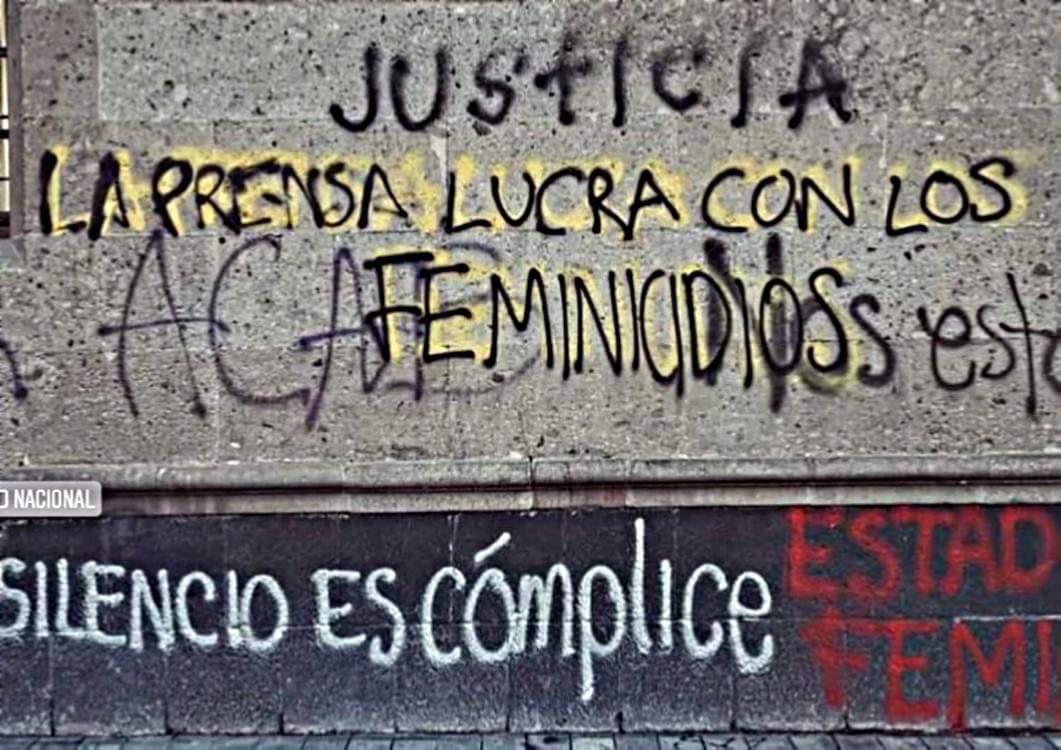 JUSTICIA
LA PRENSA LUCRA CON LOS
FEMINICIDIOS
ACAB
NACIONAL
SILENCIO ES cómplice
ESTAD
FEMI